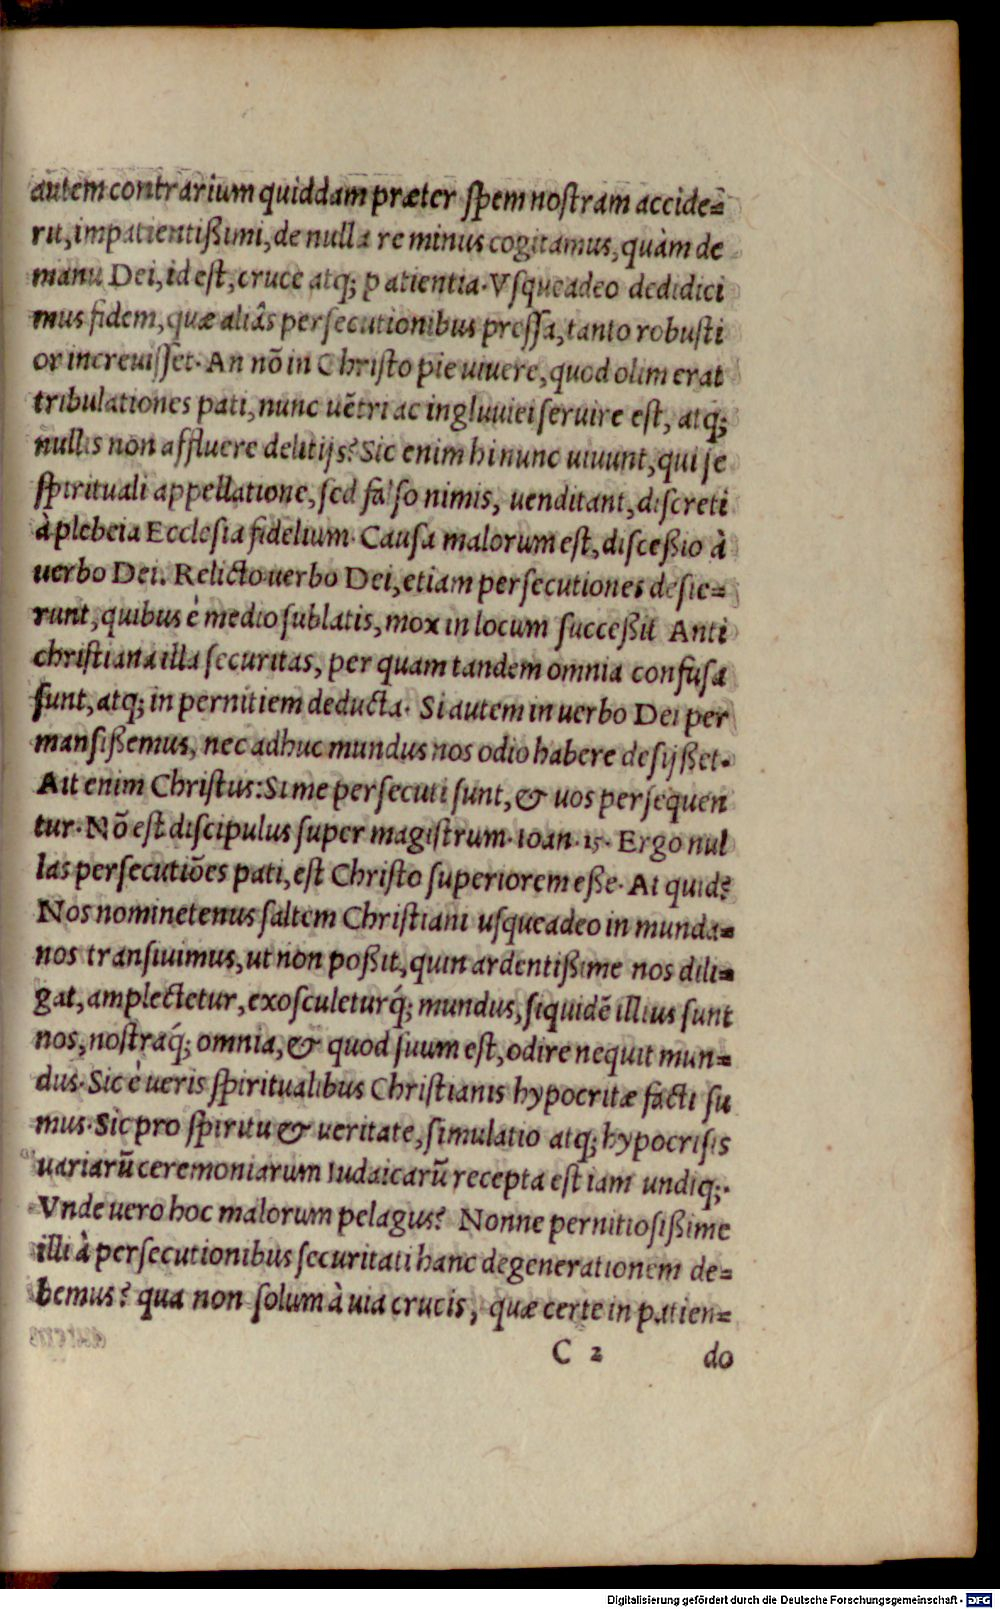 autem contrarium quiddam præter ſpem noſtram accide=
rit, impatientißimi, de nulla re minus cogitamus, quàm de
manu Dei, id eſt, cruce atq; patientia. Vſqueadeo dedidici
mus fidem, quæ aliâs perſecutionibus preſſa, tanto robuſti
or increuiſſet. An nõ in Chriſto pie uiuere, quod olim erat
tribulationes pati, nunc uẽtri ac ingluuiei ſeruire eſt, atq;
nullis non affluere delitijs? Sic enim hi nunc uiuunt, qui ſe
ſpirituali appellatione, ſed falſo nimis, uenditant, diſcreti
à plebeia Eccleſia fidelium. Cauſa malorum eſt, diſceßio à
uerbo Dei. Relicto uerbo Dei, etiam perſecutiones deſie=
runt, quibus è medio ſublatis, mox in locum ſucceßit Anti
chriſtiana illa ſecuritas, per quam tandem omnia confuſa
ſunt, atq; in pernitiem deducta. Si autem in uerbo Dei per
manſißemus, nec adhuc mundus nos odio habere deſijßet.
Ait enim Chriſtus: Si me perſecuti ſunt, & uos perſequen
tur. Nõ eſt diſcipulus ſuper magiſtrum. Ioan. 15. Ergo nul
las perſecutiões pati, eſt Chriſto ſuperiorem eße. At quid?
Nos nominetenus ſaltem Chriſtiani uſqueadeo in munda=
nos tranſiuimus, ut non poßit, quin ardentißime nos dili=
gat, amplectetur, exoſculeturq́; mundus, ſiquidẽ illius ſunt
nos, noſtraq́; omnia, & quod ſuum eſt, odire nequit mun=
dus. Sic è ueris ſpiritualibus Chriſtianis hypocritæ facti ſu
mus. Sic pro ſpiritu & ueritate, ſimulatio atq; hypocriſis
uariarũ ceremoniarum Iudaicarũ recepta eſt iam undiq;.
Vnde uero hoc malorum pelagus? Nonne pernitioſißime
illi à perſecutionibus ſecuritati hanc degenerationem de=
bemus? qua non ſolum à uia crucis, quæ certe in patien=
C 2 do
Digitalisierung gefördert durch die Deutsche Forschungsgemeinschaft - DFG